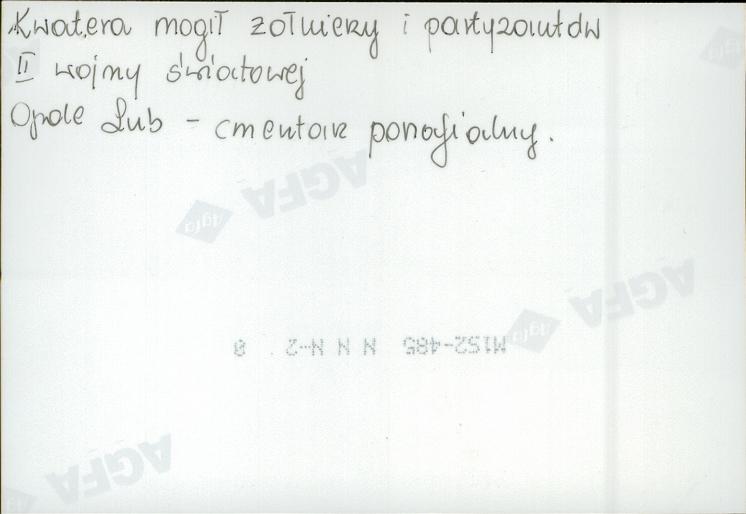 Kwatera mogił żołnierzy i partyzantów
II wojny światowej
Opole Lub - cmentarz parafialny.
AGFA
Agfa
AGFA
Agfa
M152-485 N N N-2 0
AGFA